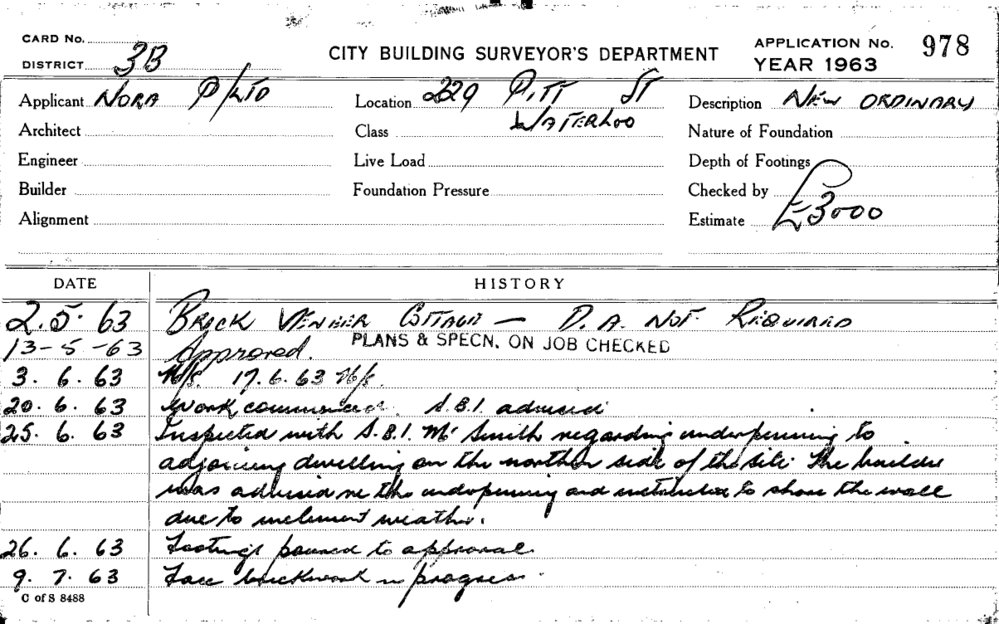 CARD No.
DISTRICT 3B
CITY BUILDING SURVEYOR'S DEPARTMENT
APPLICATION No. 978
YEAR 1963
Applicant NORA P/LTD
Location 229 PITT ST
WATERLOO
Description NEW ORDINARY
Architect
Class
Nature of Foundation
Engineer
Live Load
Depth of Footings
Builder
Foundation Pressure
Checked by
Alignment
Estimate £3000
DATE HISTORY
2.5.63 BRICK VENEER COTTAGE — D.A. NOT REQUIRED
13-5-63 Approved. PLANS & SPECN. ON JOB CHECKED
3.6.63 N/S. 17.6.63 N/S.
20.6.63 Work commenced. S.B.I. advised
25.6.63 Inspected with S.B.I. Mr Smith regarding underpinning to
adjoining dwelling on the northern side of the site. The builder
was advised re the underpinning and instructed to shore the wall
due to inclement weather.
26.6.63 Footings poured to approval.
9.7.63 Face brickwork in progress.
C of S 8488